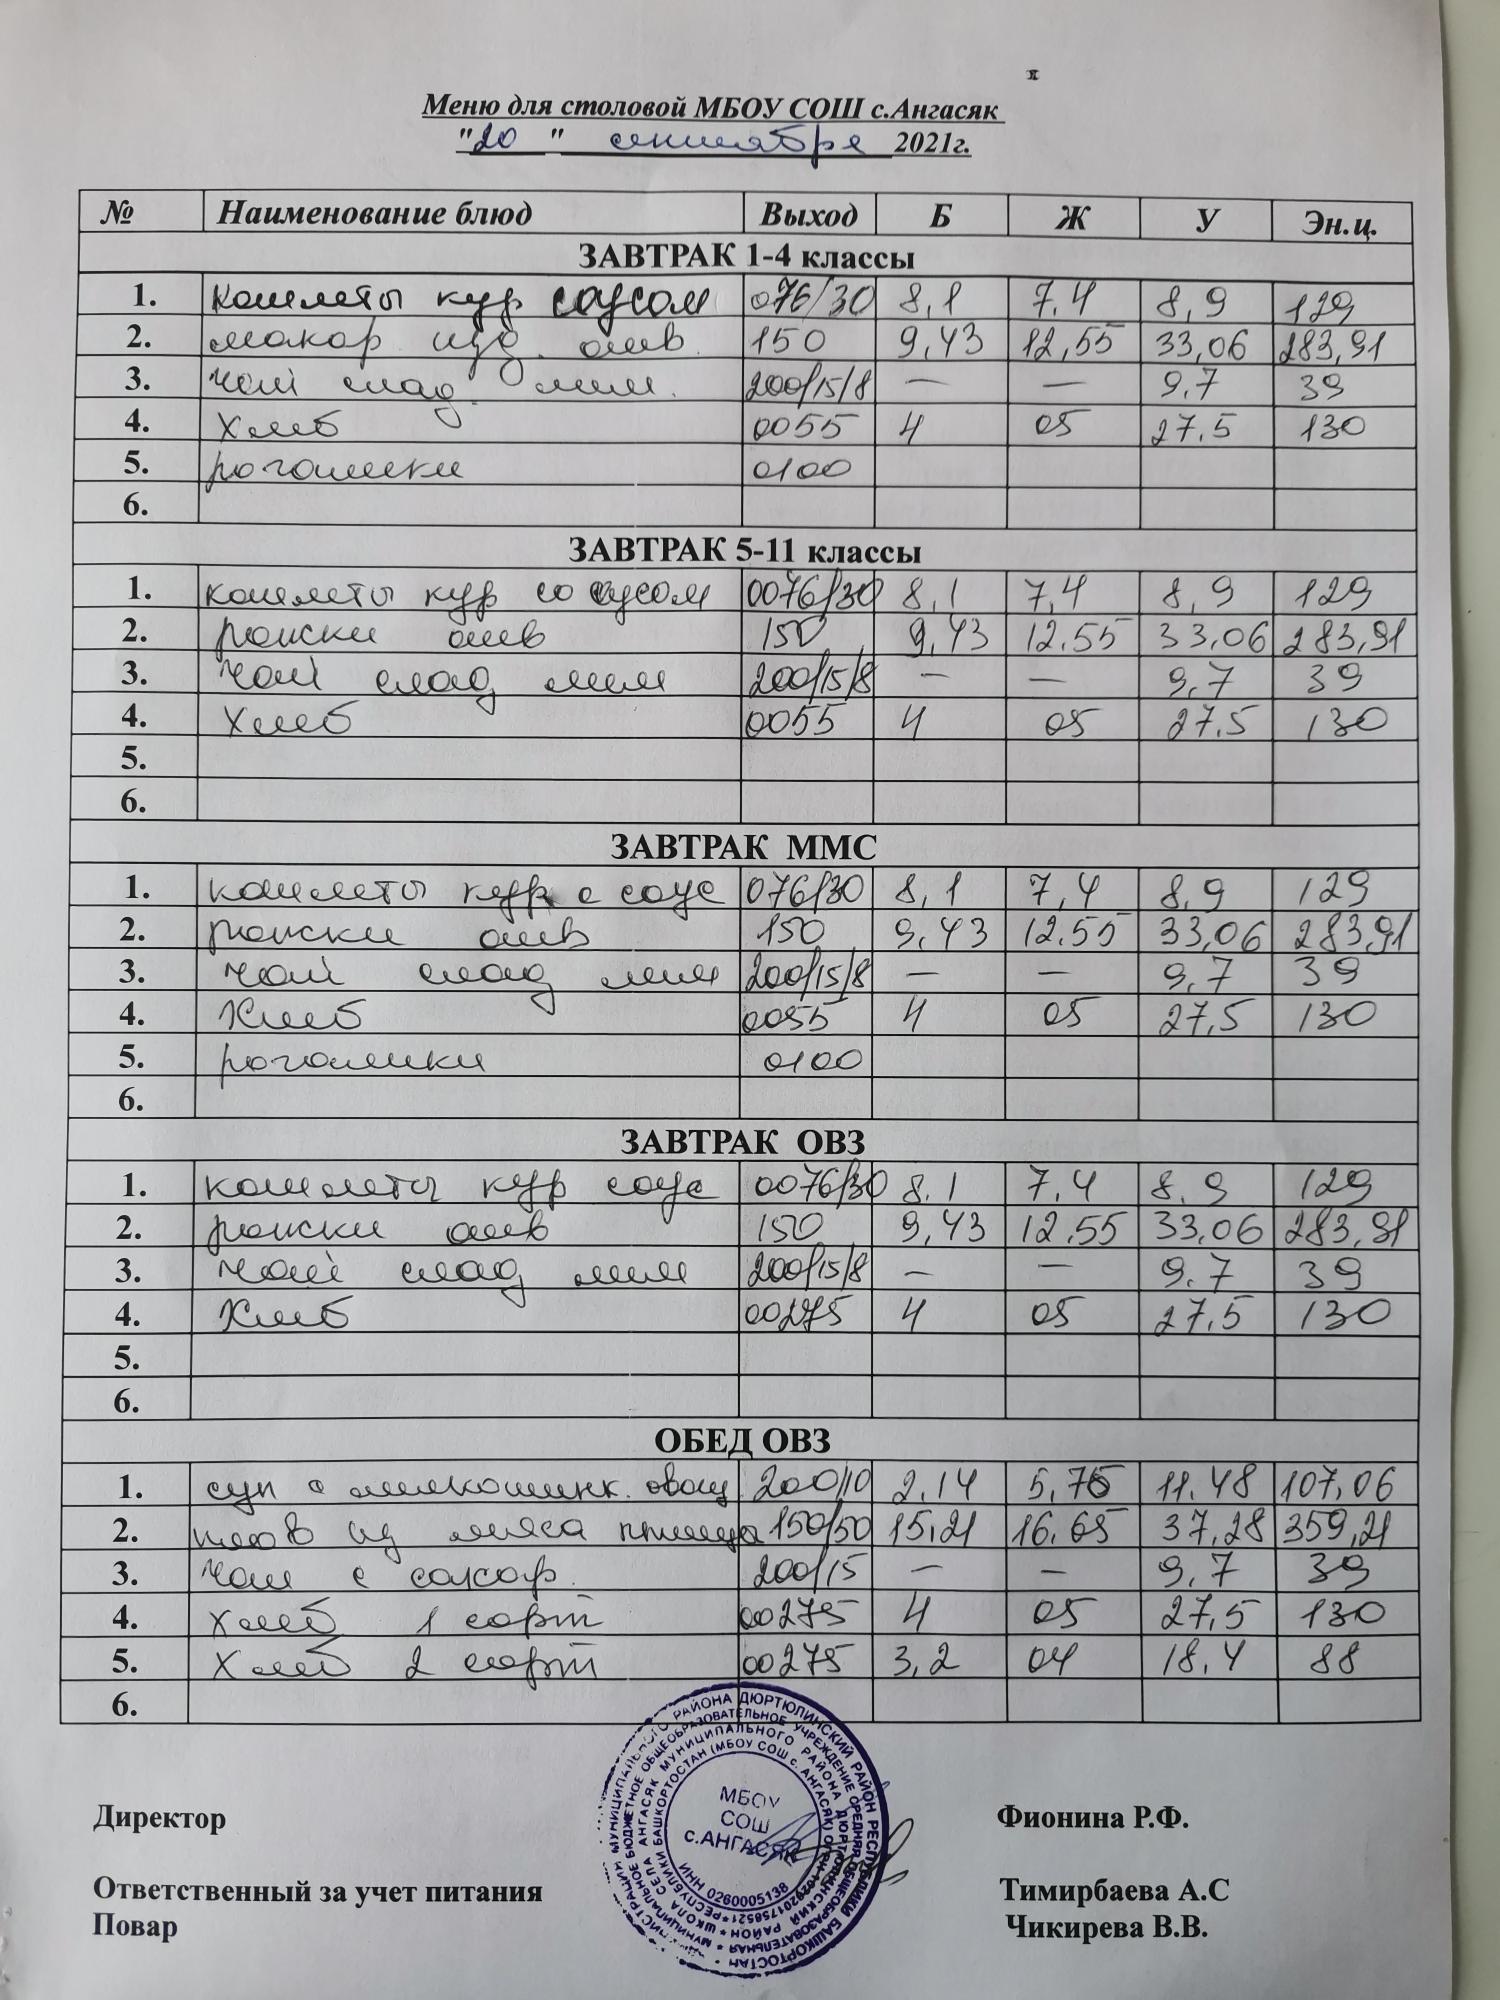 Меню для столовой МБОУ СОШ с.Ангасяк
"20" сентября 2021г.
№ Наименование блюд Выход Б Ж У Эн.ц.
ЗАВТРАК 1-4 классы
1. котлеты кур соусом 076/30 8,1 7,4 8,9 129
2. макар. изд. отв. 150 9,43 12,55 33,06 283,91
3. чай слад. лим. 200/15/8 — — 9,7 39
4. Хлеб 0055 4 05 27.5 130
5. рогалики 0100
6.
ЗАВТРАК 5-11 классы
1. котлеты кур со соусом 0076/30 8,1 7,4 8,9 129
2. рожки отв 150 9,43 12.55 33,06 283,91
3. чай слад лим 200/15/8 — — 9,7 39
4. Хлеб 0055 4 05 27.5 130
5.
6.
ЗАВТРАК ММС
1. котлеты кур с соус 076/30 8,1 7,4 8,9 129
2. рожки отв 150 9,43 12.55 33,06 283,91
3. чай слад лим 200/15/8 — — 9,7 39
4. Хлеб 0055 4 05 27,5 130
5. рогалики 0100
6.
ЗАВТРАК ОВЗ
1. котлеты кур соус 0076/30 8.1 7,4 8,9 129
2. рожки отв 150 9,43 12.55 33,06 283,91
3. чай слад лим 200/15/8 — — 9.7 39
4. Хлеб 00275 4 05 27,5 130
5.
6.
ОБЕД ОВЗ
1. суп с мелкошинк. овощ 200/10 2,14 5,75 11.48 107,06
2. плов из мяса птицы 150/50 15,21 16.65 37,28 359,21
3. чай с сахар. 200/15 — — 9,7 39
4. хлеб 1 сорт 00275 4 05 27,5 130
5. Хлеб 2 сорт 00275 3,2 04 18,4 88
6.
МБОУ
СОШ
с.АНГАСЯК
ИНН 0260005138
Директор Фионина Р.Ф.
Ответственный за учет питания Тимирбаева А.С
Повар Чикирева В.В.